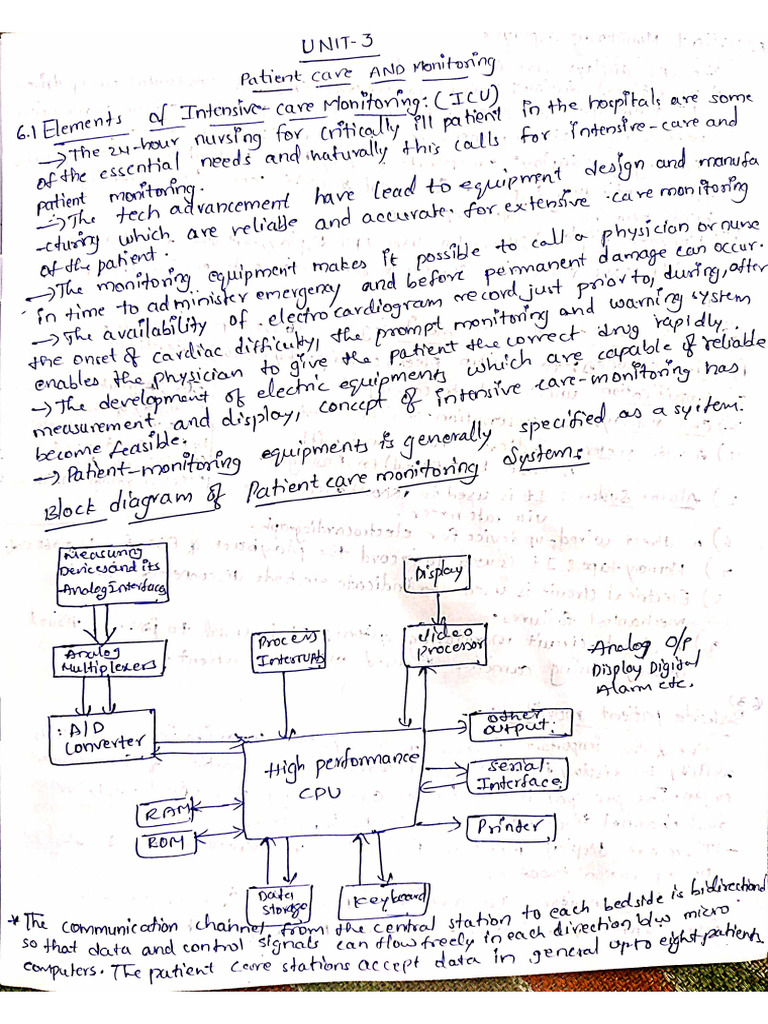 UNIT-3
Patient care AND Monitoring
6.1 Elements of Intensive-care Monitoring: (ICU)
→ The 24-hour nursing for critically ill patient in the hospitals are some
of the essential needs and naturally this calls for intensive-care and
patient monitoring.
→ The tech advancement have lead to equipment design and manufa
-cturing which are reliable and accurate. for extensive care monitoring
of the patient.
→ The monitoring equipment makes it possible to call a physician or nurse
in time to administer emergency and before permanent damage can occur.
→ The availability of electrocardiogram record just prior to, during, after
the onset of cardiac difficulty, the prompt monitoring and warning system
enables the physician to give the patient the correct drug rapidly.
→ The development of electric equipments which are capable of reliable
measurement and display, concept of intensive care-monitoring has
become feasible.
→ Patient-monitoring equipments is generally specified as a system.
Block diagram of Patient care monitoring System:
Measuring
Devices and its
-Analog Interface
Display
Analog
Multiplexers
Process
Interrupts
Video
processor
Analog O/P
Display Digital
Alarm etc.
A/D
Converter
other
output.
High performance
CPU
Serial
Interface
RAM
ROM
Printer
Data
Storage
Keyboard
* The communication channel from the central station to each bedside is bidirectional
so that data and control signals can flow freely in each direction b/w micro
computers. The patient care stations accept data in general upto eight patients.